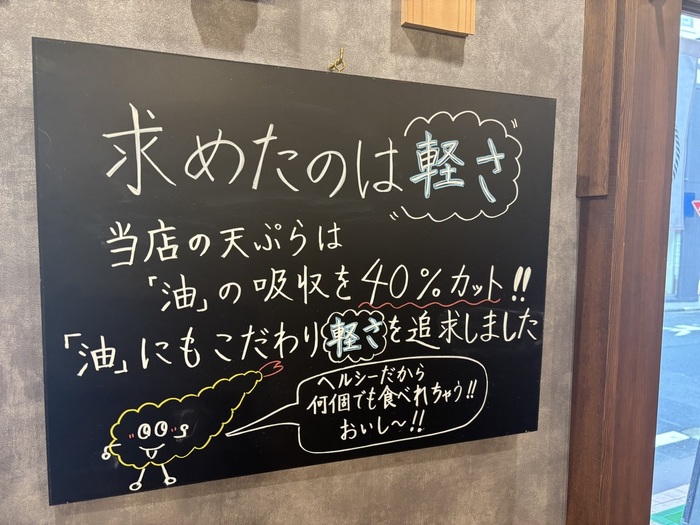 求めたのは軽さ
当店の天ぷらは
「油」の吸収を40%カット!!
「油」にもこだわり軽さを追求しました
ヘルシーだから
何個でも食べれちゃう!!
おいし〜!!